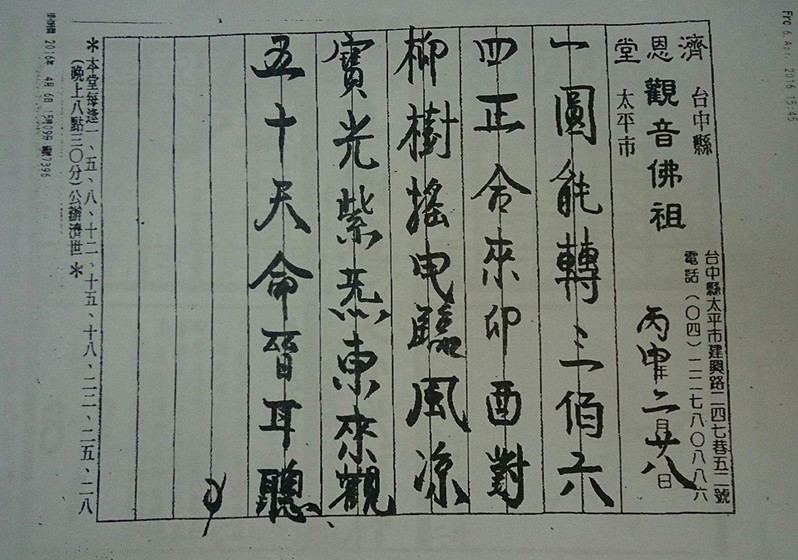 6. Apr. 2016 15:45
台中縣太平市建興路二四七巷五二號
電話(〇四)二二七八〇八八六
台中縣
太平市
濟恩堂
觀音佛祖
丙申年二月廿八日
一圓能轉三佰六
四正令來卯酉對
柳樹搖曳臨風凉
寶光紫炁東來觀
五十天命晉耳聽
*本堂每逢一、五、八、十二、十五、十八、二二、二五、二八
(晚上八點三〇分)公辦濟世*
2016年 4月 6日 15時09分